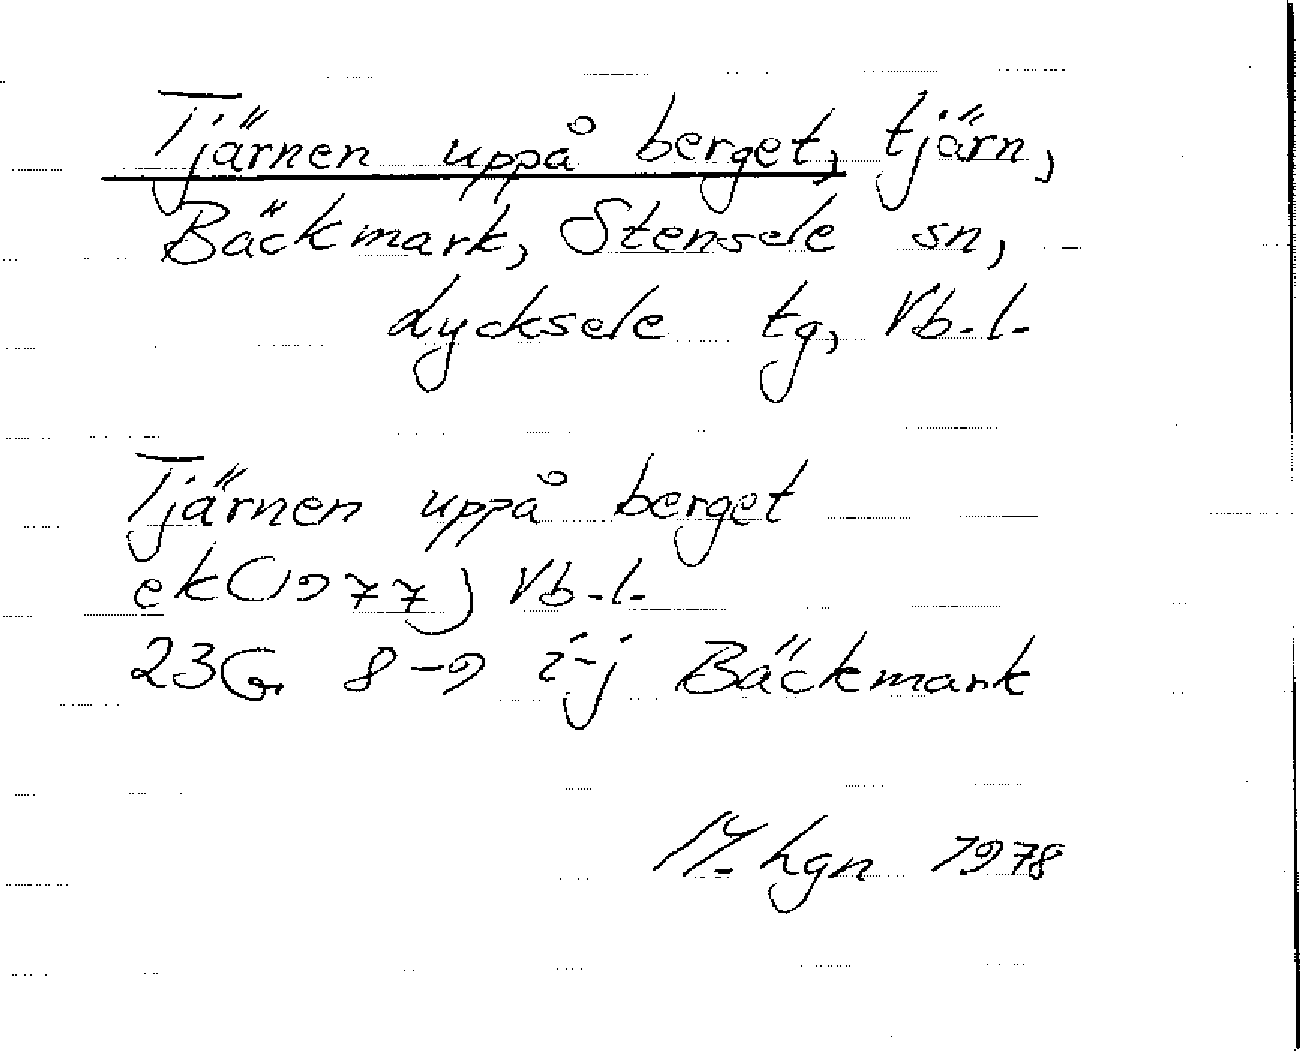 Tjärnen uppå berget, tjärn,
Bäckmark, Stensele sn,
Lycksele tg, Vb.l.
Tjärnen uppå berget
ek (1977) Vb.l.
23G 8-9 i-j Bäckmark
M. hgn 1978